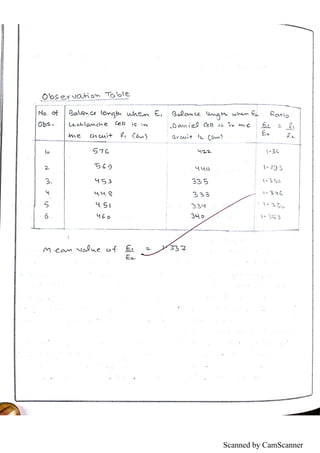 Observation Table
No. of Obs. Balance length when E1 Leclanche cell is in the circuit l1 (cm) Balance length when E2 Daniel cell is in the circuit l2 (cm) Ratio E1/E2 = l1/l2
1. 576 422 1.36
2. 569 440 1.293
3. 453 335 1.350
4 448 333 1.346
5 451 334 1.350
6. 460 340 1.353
Mean value of E1/E2 = 1.337
Scanned by CamScanner